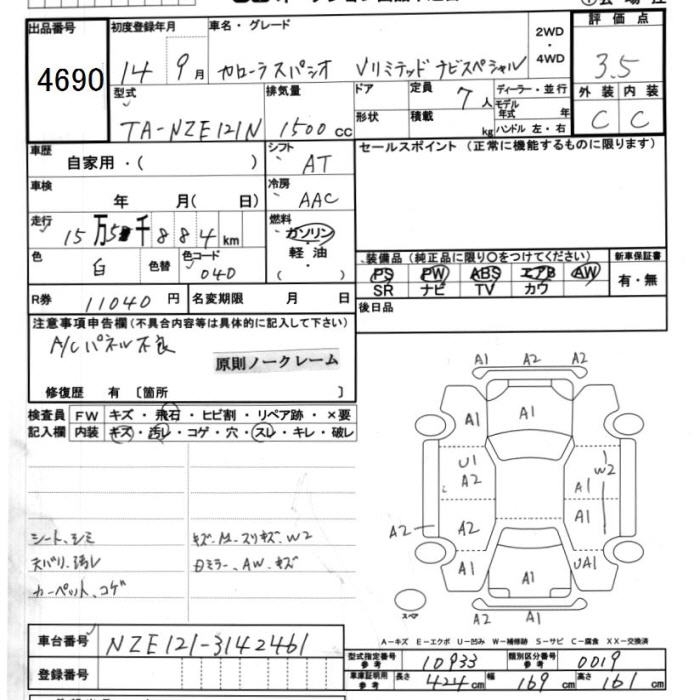 出品番号
4690
初度登録年月
14 9月
車名・グレード
カローラスパシオ Vリミテッド ナビスペシャル
2WD
・
4WD
評価点
3.5
外装 内装
C C
型式
TA-NZE121N
排気量
1500cc
ドア
形状
定員
7人
積載
kg
ディーラー・並行
モデル年式 年
ハンドル 左・右
車歴
自家用・( )
シフト
AT
セールスポイント (正常に機能するものに限ります)
車検
年 月( 日)
冷房
AAC
走行
15万5千884km
燃料
ガソリン
軽油
( ・ )
色
白
色替
色コード
040
装備品 (純正品に限り〇をつけてください)
PS PW ABS エアB AW
SR ナビ TV カワ
新車保証書
有・無
R券 11040円
名変期限 月 日
後日品
注意事項申告欄(不具合内容等は具体的に記入して下さい)
A/Cパネル不良
原則ノークレーム
修復歴 有 〔箇所 〕
検査員
記入欄
FW キズ・飛石・ヒビ割・リペア跡・×要
内装 キズ・汚レ・コゲ・穴・スレ・キレ・破レ
シート、シミ
天バリ、汚レ
カーペット、コゲ
キズ・A・スリキズ、W2
Dミラー、AW、キズ
A1 A2 A2
A1 A1 A1
U1
A2
W2
A1
A2 A2
A1
A1 A1 UA1
スペア
A2 A1
A-キズ E-エクボ U-凹み W-補修跡 S-サビ C-腐食 XX-交換済
車台番号 NZE121-3142461
登録番号
型式指定番号
参考
10933
類別区分番号
参考
0019
車庫証明用
参考
長さ 424cm 幅 169cm 高さ 161cm